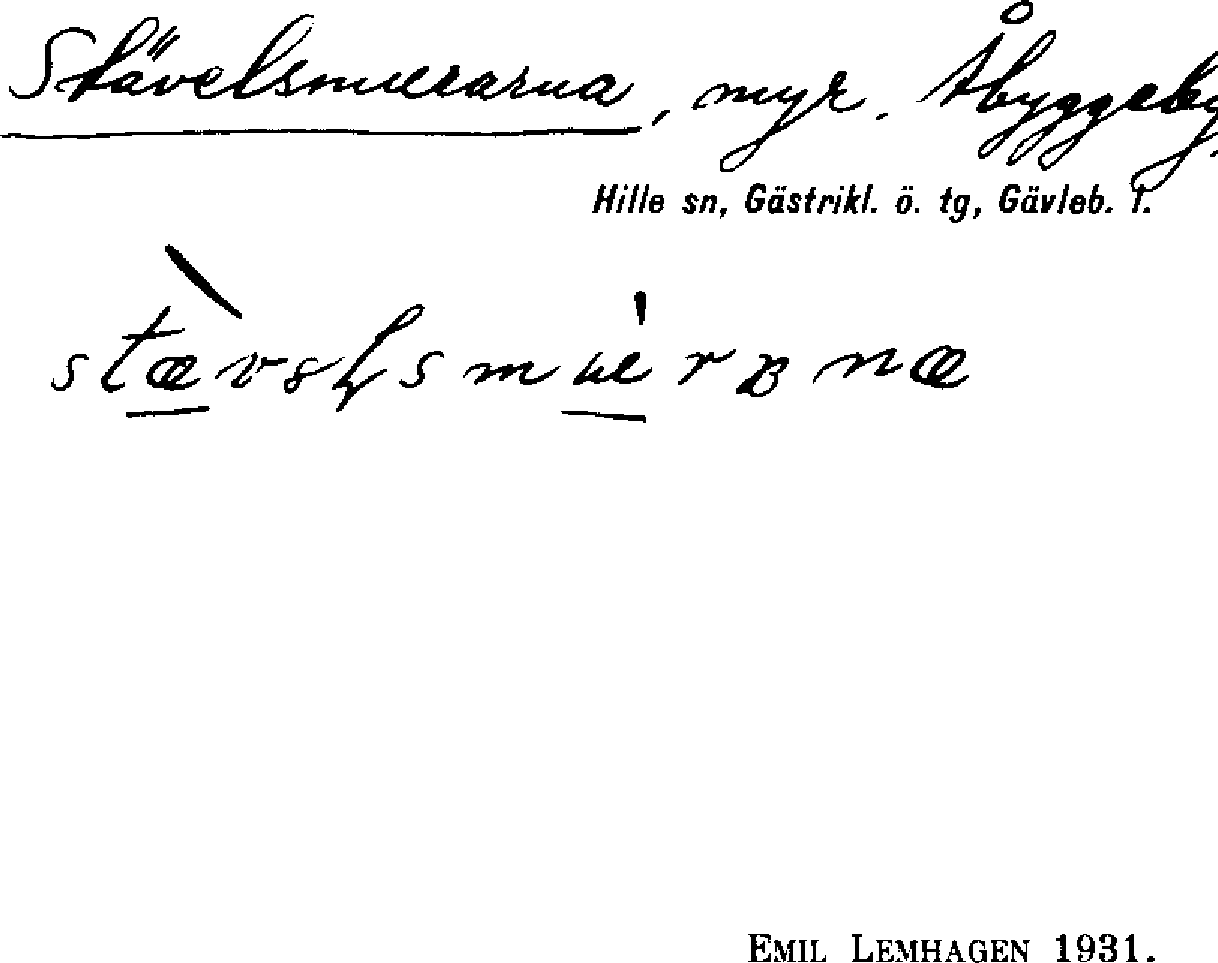 Stävelsmurarna, myr. Åbyggeby.
Hille sn, Gästrikl. ö. tg, Gävleb. l.
EMIL LEMHAGEN 1931.